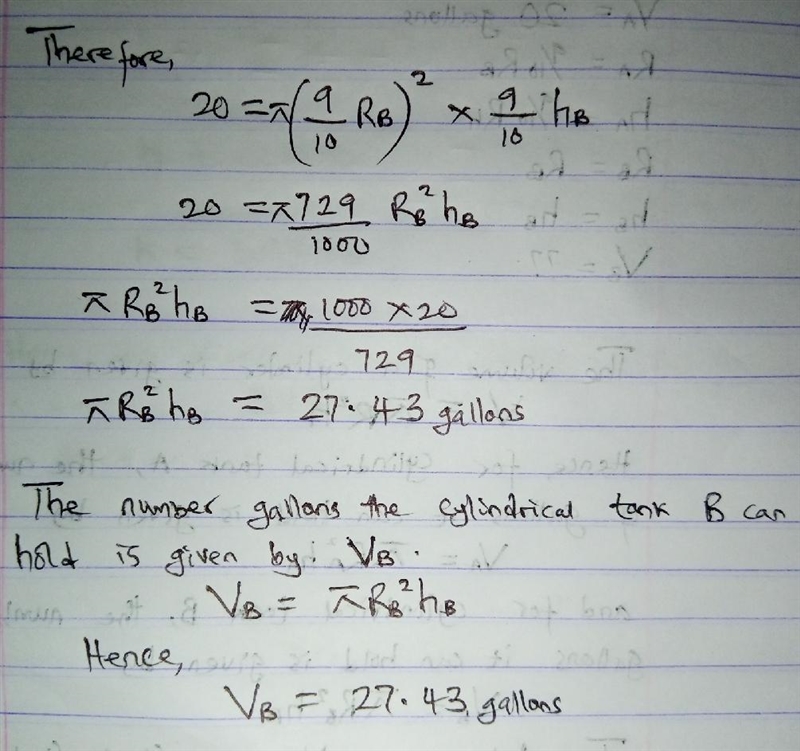 Therefore,
20 = π(9/10 RB)² × 9/10 hB
20 = π 729/1000 RB² hB
π RB² hB = 1000 × 20 / 729
π RB² hB = 27.43 gallons
The number gallons the cylindrical tank B can
hold is given by: VB.
VB = π RB² hB
Hence,
VB = 27.43 gallons